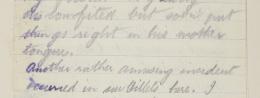 discomfited but soon put
things right in his mother
tongue.
Another rather amusing incident
occurred in our Billets here. I